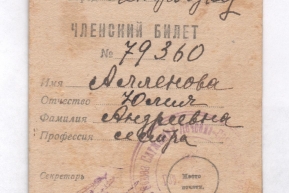 ЧЛЕНСКИЙ БИЛЕТ
№ 79360
Имя Алленова
Отчество Юлия
Фамилия Андреевна
Профессия сестра
Секретарь
Место
печати.